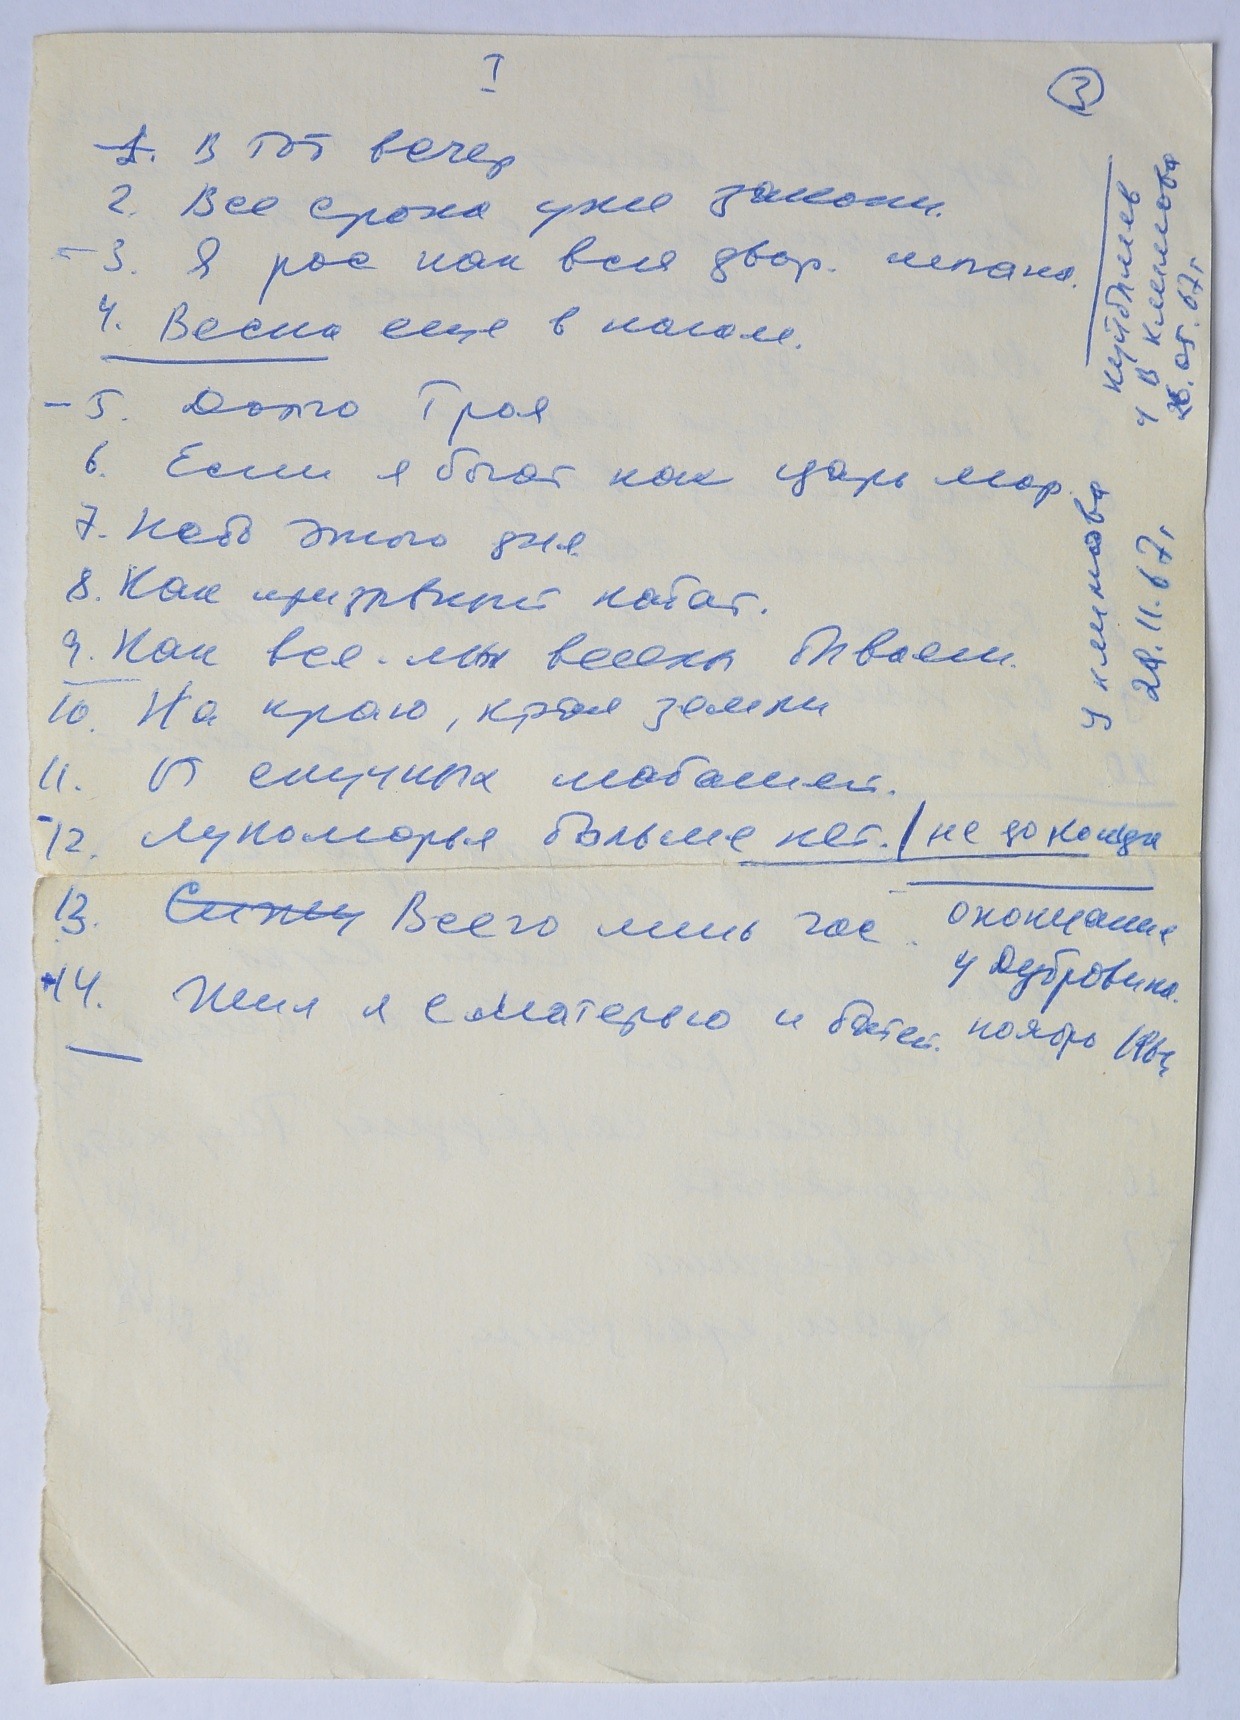 I
3
1. В тот вечер
2. Все срока уже закончи.
- 3. Я рос как вся двор. шпана.
4. Весна еще в начале.
- 5. Долго Троя
6. Если я богат как царь мор.
7. Небо этого дня
8. Как призывный набат.
9. Как все мы веселы бываем.
10. На краю, края земли
11. От скучных шабашей.
- 12. Лукоморья больше нет. / не до конца
13. Сижу Всего лишь час. окончание
у Дубровина.
- 14. Жил я с матерью и батей. ноябрь 1967
Куйбышев
у В Климова
05.67г
у Климова
29.11.67г